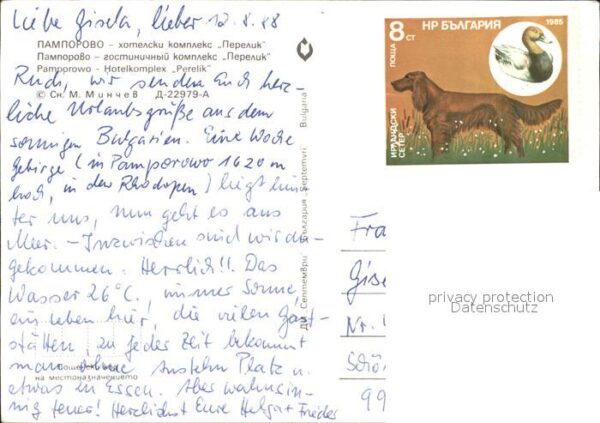 Liebe Gisela, lieber 12.8.88
ПАМПОРОВО – хотелски комплекс „Перелик“
Пампорово – гостиничный комплекс „Перелик“
Pamporowo – Hotelkomplex „Perelik“
Rudi, wir senden Euch herz-
© Сн. М. Минчев Д-22979-А
liche Urlaubsgrüße aus dem
sonnigen Bulgarien. Eine Woche
Gebirge (in Pamporowo 1620 m
hoch, in den Rhodopen) liegt hin-
ter uns, nun geht es ans
Meer. – Inzwischen sind wir da-
gekommen. Herrlich!!. Das
Wasser 26°C, immer Sonne,
ein Leben hier, die vielen Gast-
stätten, zu jeder Zeit bekommt
man ohne Anstehn Platz u.
Пощенски код
на местоназначението
etwas zu Essen. Aber wahnsin-
nig teuer! Herzlichst Eure Helga + Frieder
ДИ Септември България Septemvri Bulgaria
8 СТ
ПОЩА
НР БЪЛГАРИЯ
1985
ИРЛАНДСКИ
СЕТЕР
Fra
Gise
Nr.
Schö
99
privacy protection
Datenschutz